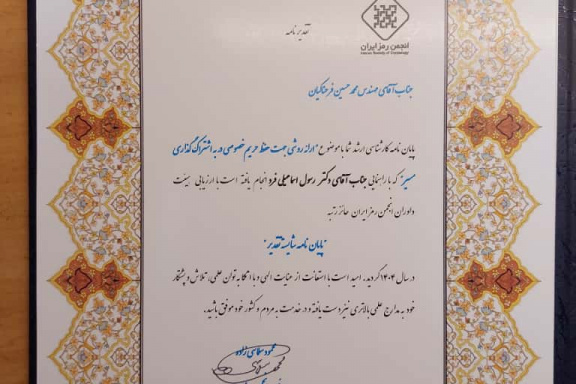 تقدیر نامه
انجمن رمز ایران
Iranian Society of Cryptology
جناب آقای مهندس محمد حسین فرحناکیان
پایان نامه کارشناسی ارشد شما با موضوع "ارائه روشی جهت حفظ حریم خصوصی در به اشتراک گذاری
مسیر" که با راهنمایی جناب آقای دکتر رسول اسماعیلی فرد انجام یافته است با ارزیابی هیئت
داوران انجمن رمز ایران حائز رتبه
"پایان نامه شایسته تقدیر"
در سال ۱۴۰۲ گردید. امید است با استعانت از عنایت الهی و با اتکا به توان علمی، تلاش و پشتکار
خود به مدارج علمی بالاتری نیز دست یافته و در خدمت به مردم و کشور خود موفق باشید.
محمود سلماسی زاده